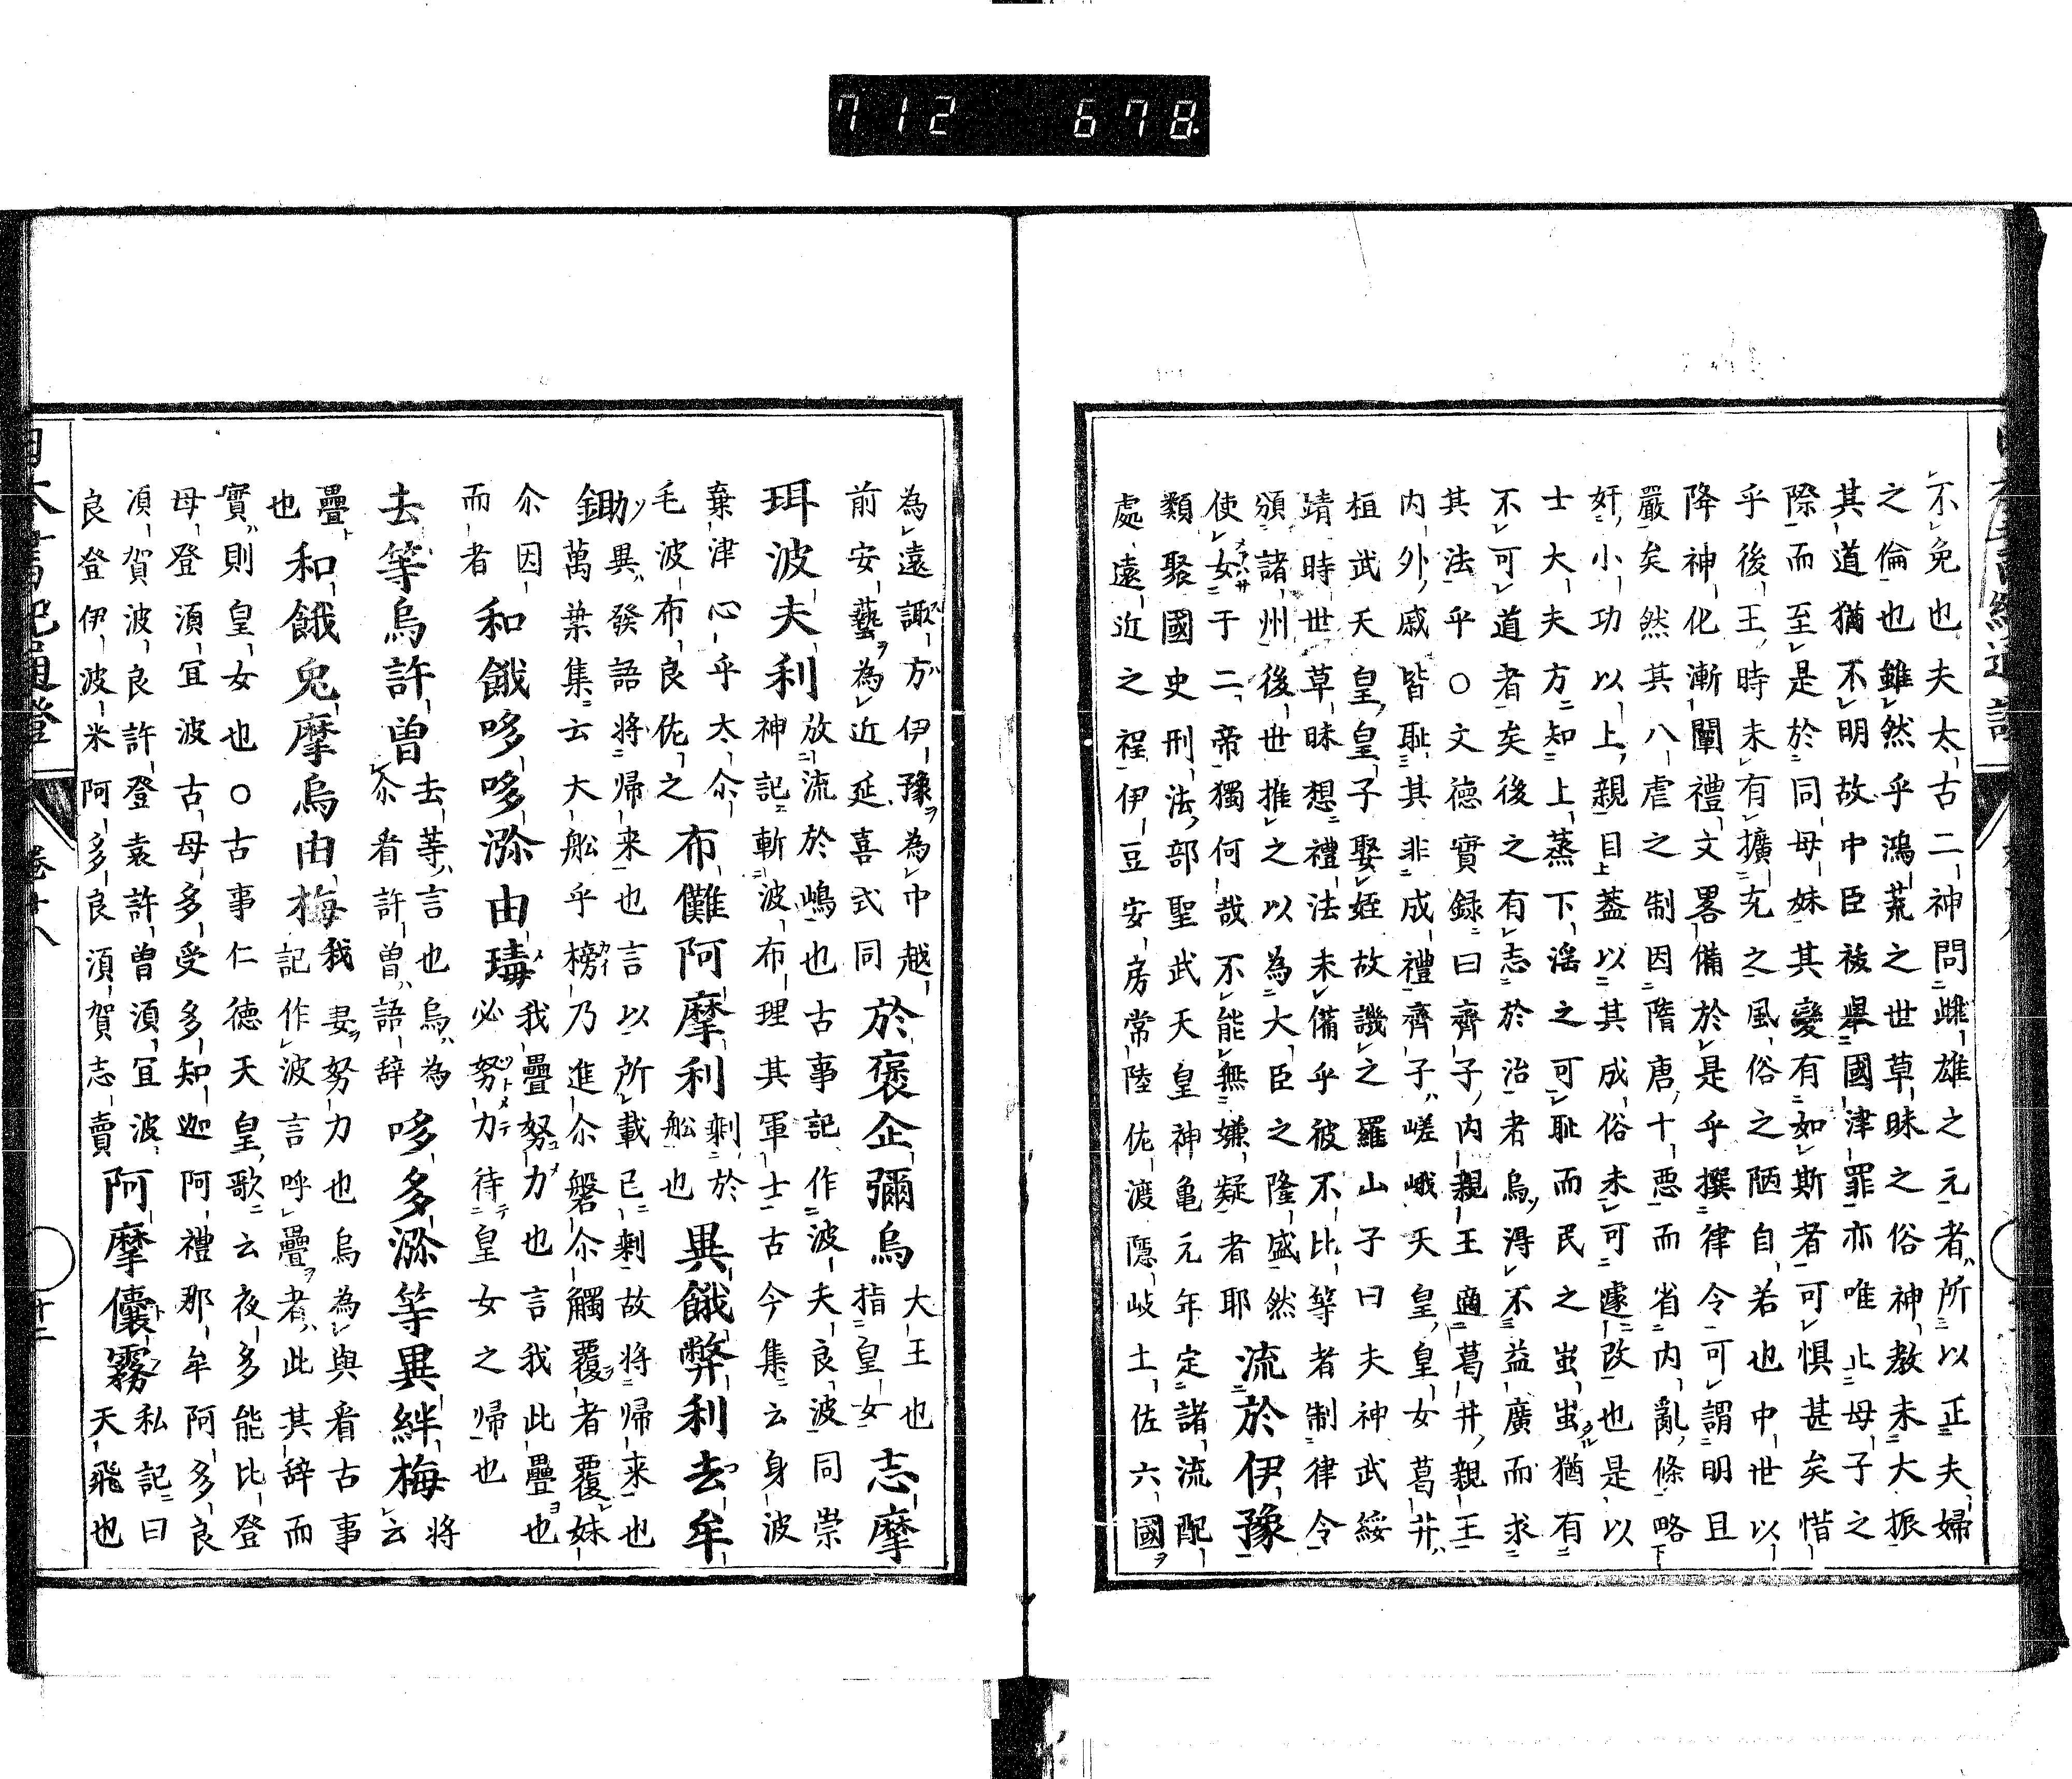 712 678
不免也夫太古二神問雌雄之元者所以正夫婦
之倫也雖然乎鴻荒之世草昧之俗神教未大振
其道猶不明故中臣祓舉國津罪亦唯止母子之
際而至是於同母妹其變有如斯者可惧甚矣惜
乎後王時未有擴充之風俗之陋自若也中世以
降神化漸闡禮文畧備於是乎撰律令可謂明且
嚴矣然其八虐之制因隋唐十悪而省内亂條略
奸小功以上親目蓋以其成俗未可遽改也是以
士大夫方知上蒸下淫之可耻而民之蚩蚩猶有
不可道者矣後之有志於治者烏得不益廣而求
其法乎○文徳實録曰齊子内親王適葛井親王
内外戚皆耻其非成禮齊子嵯峨天皇皇女葛井
桓武天皇皇子娶姪故譏之羅山子曰夫神武綏
靖時世草昧想禮法未備乎彼不比等者制律令
頒諸州後世推之以為大臣之隆盛然
使女于二帝獨何哉不能無嫌疑者耶
流於伊豫
類聚國史刑法部聖武天皇神亀元年定諸流配
處遠近之程伊豆安房常陸佐渡隠岐土佐六國
為遠諏方伊豫為中越
前安藝為近延喜式同
於褒企彌烏
大王也
指皇女
志摩
珥波夫利
放流於嶋也古事記作波夫良波同崇
神記斬波布理其軍士古今集云身波
棄津心乎太尒
毛波布良佐之
布儺阿摩利
剰於
船也
異餓幣利去牟
鋤
異發語将歸来也言以所載已剰故将歸来也
萬葉集云大舩乎榜乃進尒磐尒觸覆者覆妹
尒因
而者
和餓哆哆瀰由瑇
我疊努力也言我此疊也
必努力待皇女之歸也
去等烏許曽
去等言也烏為
尒看許曽語辞
哆多瀰等異絆梅
将
云
疊
也
和餓兔摩烏由梅
我妻努力也烏為與看古事
記作波言呼疊者此其辞而
實則皇女也○古事仁徳天皇歌云夜多能比登
母登湏冝波古母多受多知迦阿禮那牟阿多良
湏賀波良許登袁許曽湏冝波
良登伊波米阿多良湏賀志賣
阿摩儾霧
私記曰
天飛也